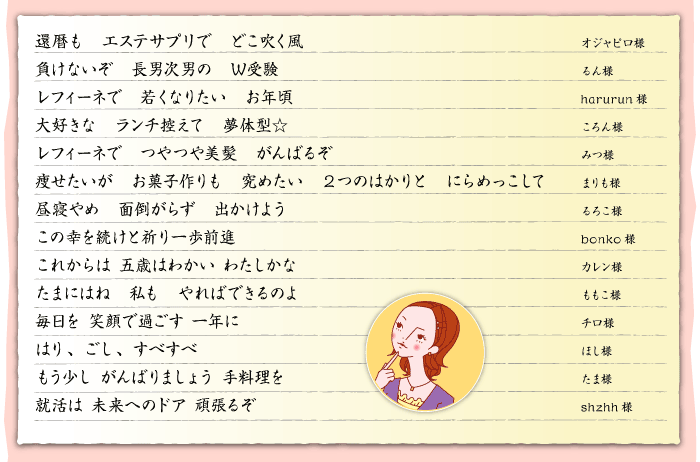 還暦も　エステサプリで　どこ吹く風　オジャピロ様
負けないぞ　長男次男の　W受験　るん様
レフィーネで　若くなりたい　お年頃　harurun 様
大好きな　ランチ控えて　夢体型☆　ころん様
レフィーネで　つやつや美髪　がんばるぞ　みつ様
痩せたいが　お菓子作りも　究めたい　２つのはかりと　にらめっこして　まりも様
昼寝やめ　面倒がらず　出かけよう　るろこ様
この幸を続けと祈り一歩前進　bonko 様
これからは 五歳はわかい わたしかな　カレン様
たまにはね　私も　やればできるのよ　ももこ様
毎日を 笑顔で過ごす 一年に　チロ様
はり、ごし、すべすべ　ほし様
もう少し がんばりましょう 手料理を　たま様
就活は 未来へのドア 頑張るぞ　shzhh 様